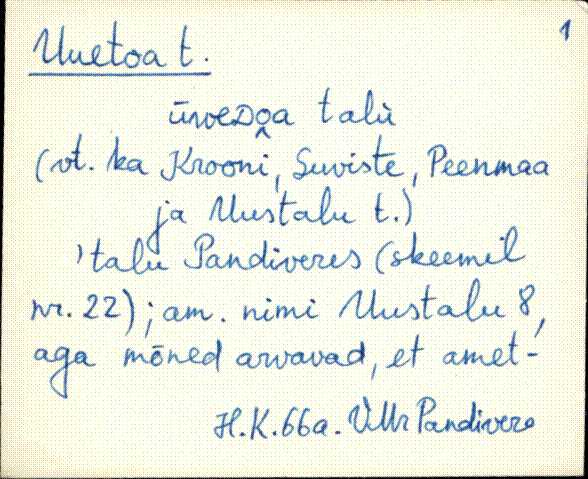 1
Uuetoa t.
ūweDo̭a talù
(vt. ka Krooni, Suviste, Peenmaa
ja Uustalu t.)
'talu Pandiveres (skeemil
nr. 22); am. nimi Uustalu 8,
aga mõned arvavad, et amet-
H.K. 66a. VMr Pandivere